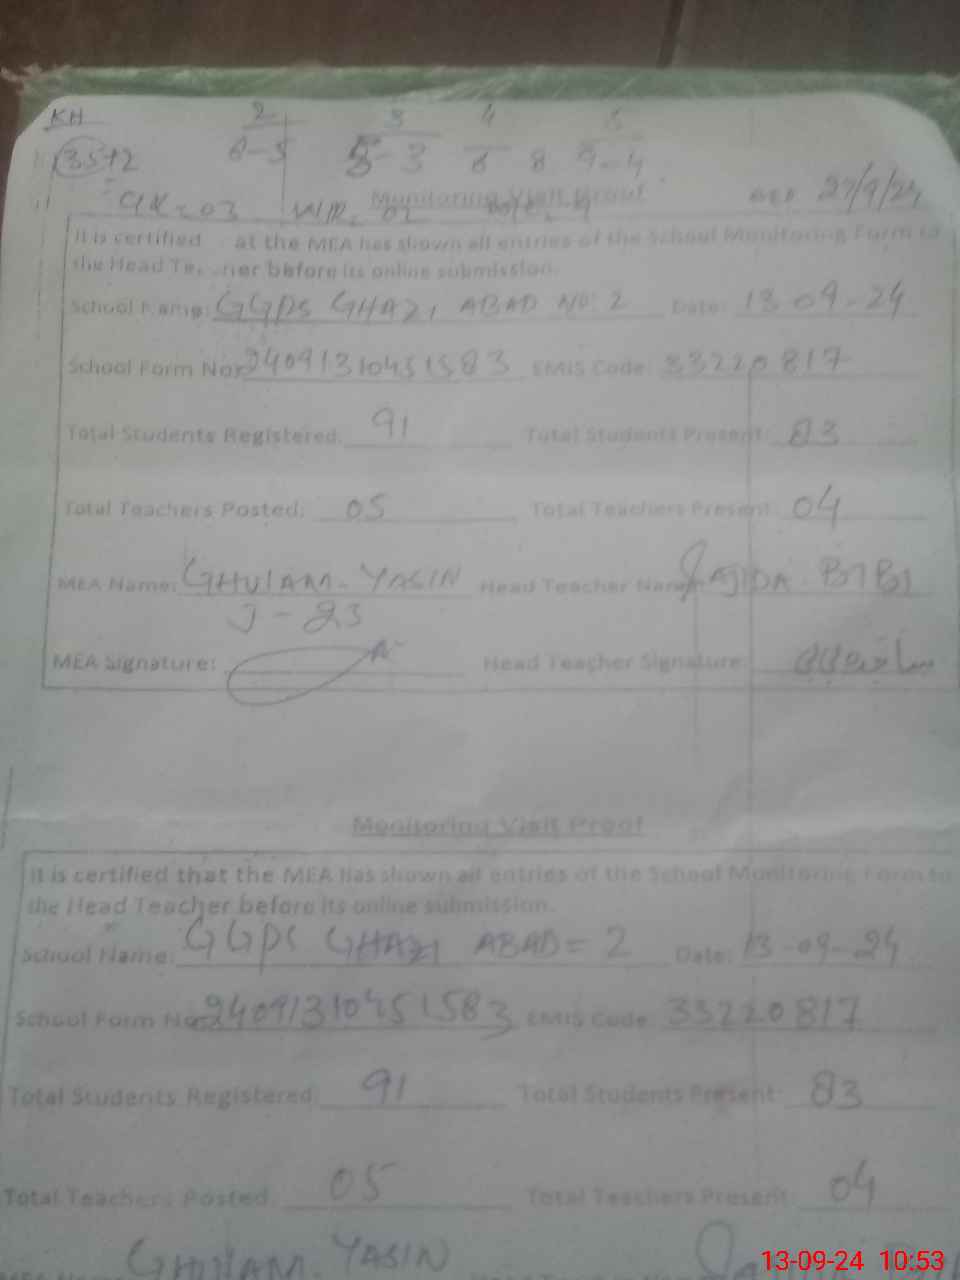 KH 2 3 4 5
35+2 6-5 8-3 6 8 9-4
= 03
Monitoring Visit Proof 27/9/24
It is certified at the MEA has shown all entries of the School Monitoring Form to
the Head before its online submission.
School Name: GGPS GHAZI ABAD NO: 2 Date: 13-09-24
School Form No: 24091310451583 EMIS Code: 33220817
Total Students Registered: 91 Total Students Present: 83
Total Teachers Posted: 05 Total Teachers Present: 04
MEA Name: GHULAM. YASIN Head Teacher Name: SAJIDA BIBI
J-23
MEA Signature: Head Teacher Signature:
Monitoring Visit Proof
It is certified that the MEA has shown all entries of the School Monitoring Form to
the Head Teacher before its online submission.
School Name: GGPS GHAZI ABAD = 2 Date: 13-09-24
School Form No: 24091310451583 EMIS Code: 33220817
Total Students Registered: 91 Total Students Present: 83
Total Teachers Posted: 05 Total Teachers Present: 04
GHULAM. YASIN
13-09-24 10:53